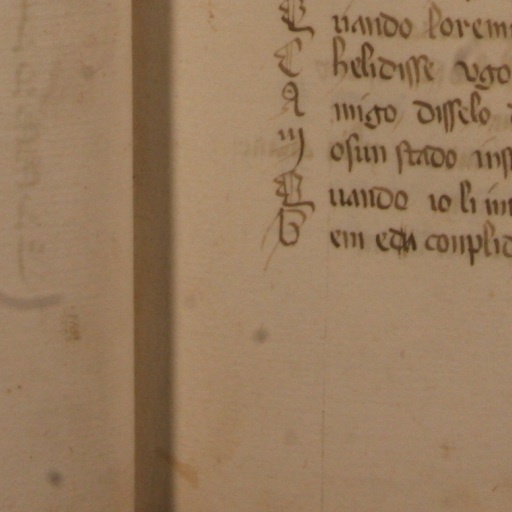 Quando lo rem
Che li disse ugo
Amigo disselo
Mosun stado ins
Quando io li im
Bem edu conplid